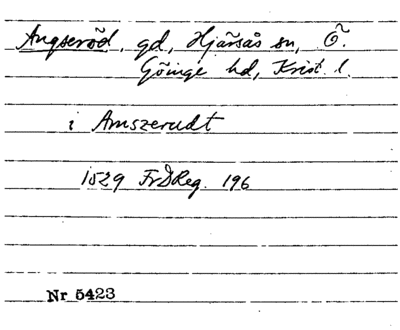 Angseröd, gd, Hjärsås sn, Ö.
Göinge hd, Krist. l.
i Amszerudt
1529 FrDReg. 196
Nr 5423